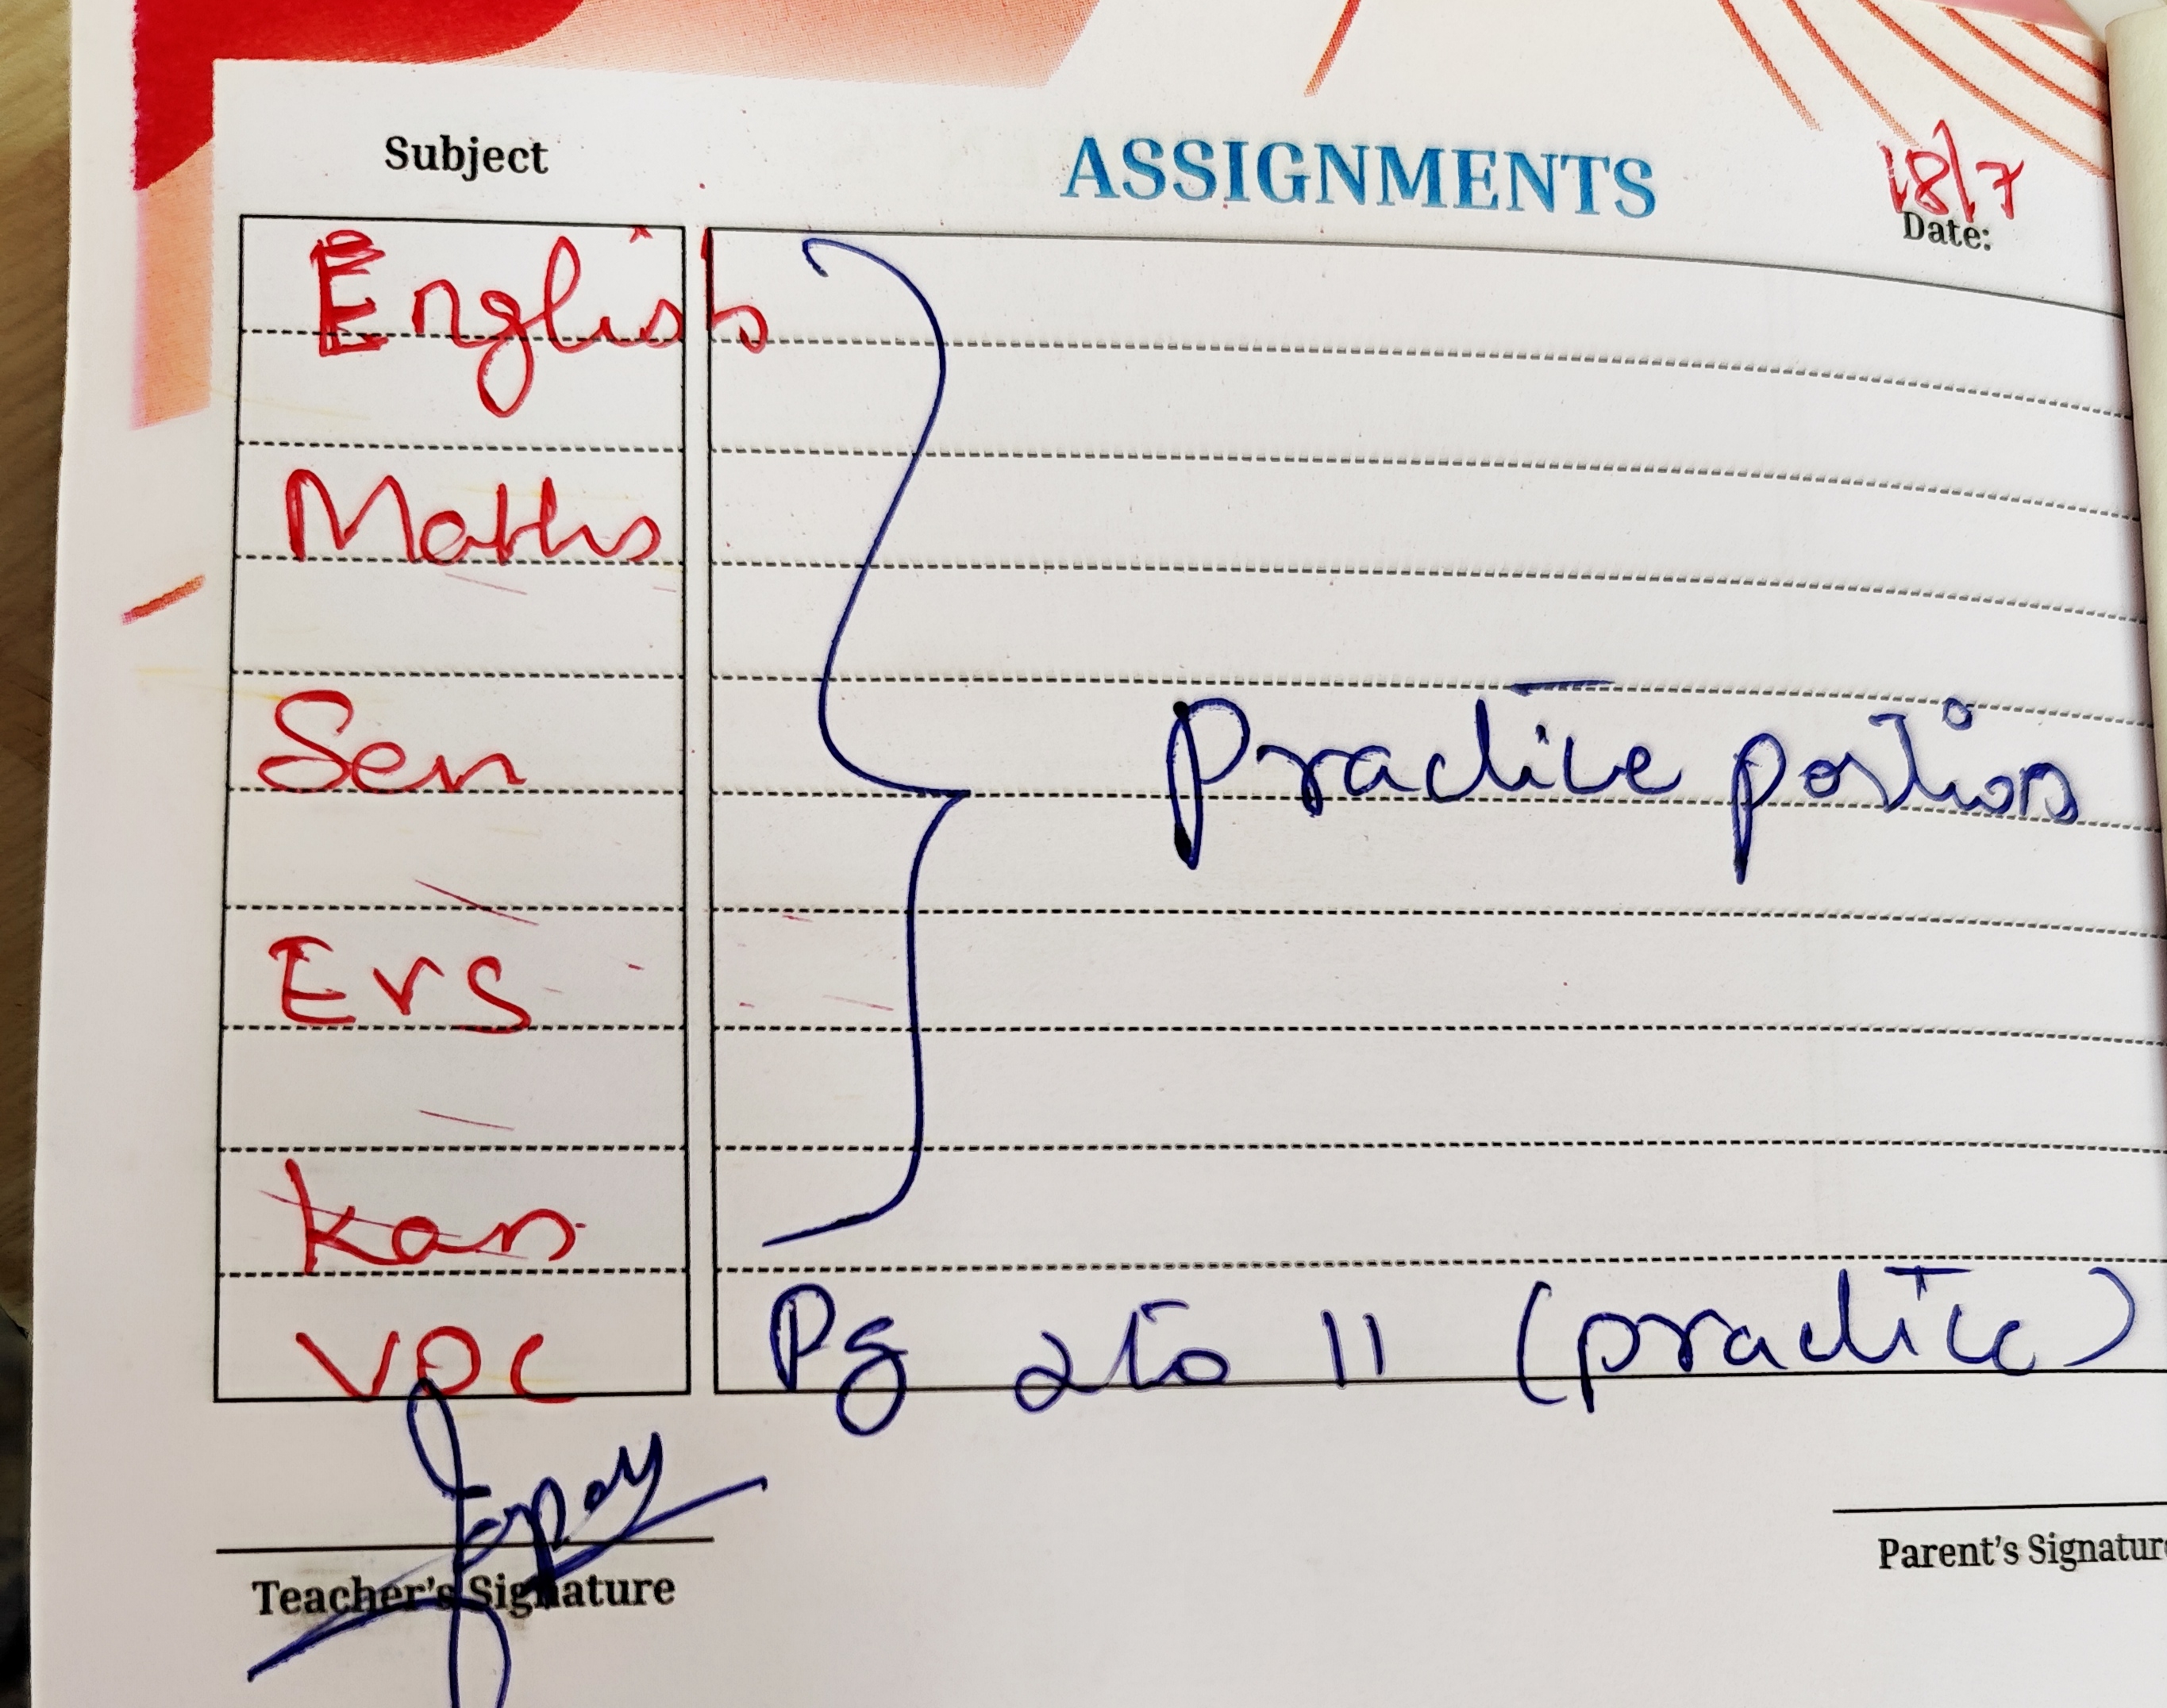 Subject ASSIGNMENTS 18/7
Date:
English
Maths
Sen
Evs
Practice portion
Kan
VOC Pg 2 to 11 (practice)
Teacher's Signature
Parent's Signature